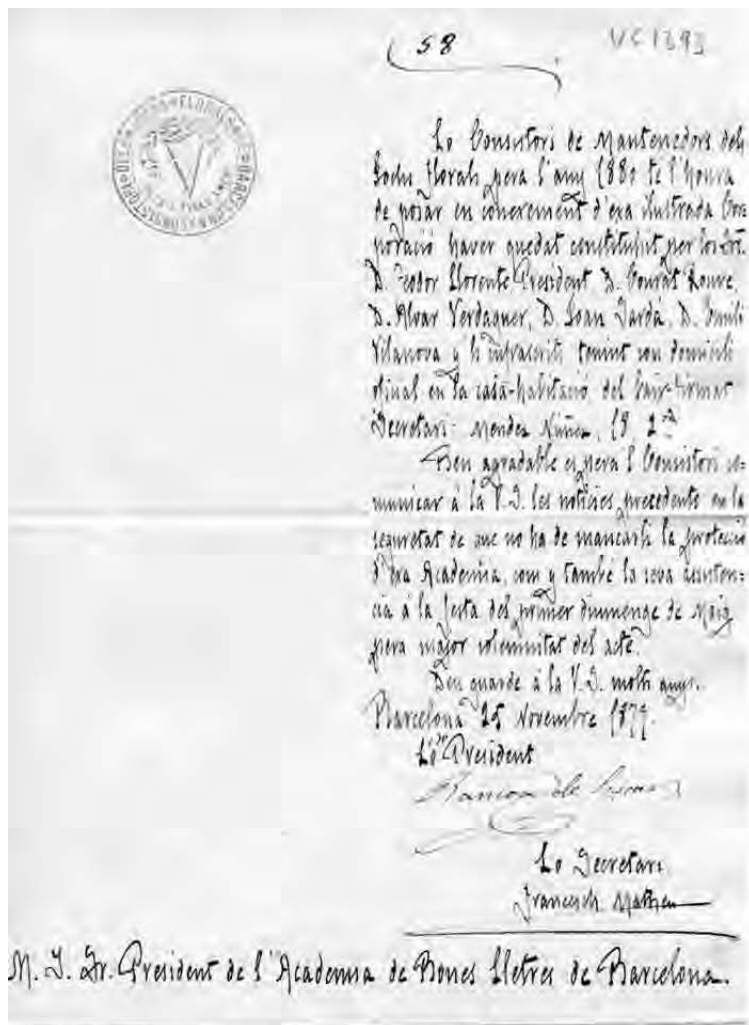 58
VC1393
Lo Consistori de Mantenedors dels
Jochs Florals pera l'any 1880 te l'honra
de posar en coneixement d'exa ilustrada Cor=
poració haver quedat constituhit per los Srs.
D. Teodor Llorente President D. Conrat Roure,
D. Alvar Verdaguer, D. Joan Sardá, D. Emili
Vilanova y lo infrascrit, tenint son domicili
oficial en la casa-habitació del baix-firmat
Secretari- Mendez Nuñez, 18, 2on
Ben agradable es pera l Consistori co=
municar á la V. S. les noticies precedents en la
seguretat de que no ha de mancarli la protecció
d'exa Academia, com y també la seva assisten=
cia á la festa del primer diumenge de Maig
pera major solemnitat del acte.
Deu guarde á la V. S. molts anys.
Barcelona 25 Novembre 1879.
Lo President
Lo Secretari
Francesch Matheu
M. I. Sr. President de l'Academia de Bones Lletres de Barcelona.